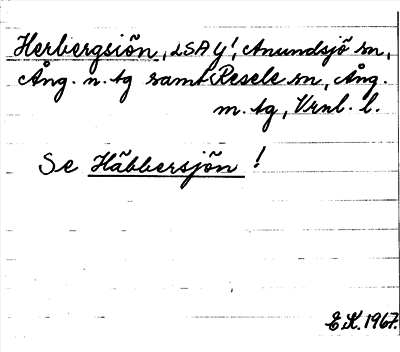 Herbergsiön, LSA Y!, Anundsjö sn,
Ång. n. tg samt Resele sn, Ång.
m. tg, Vrnl. l.
Se Häbbersjön !
E.K. 1967.